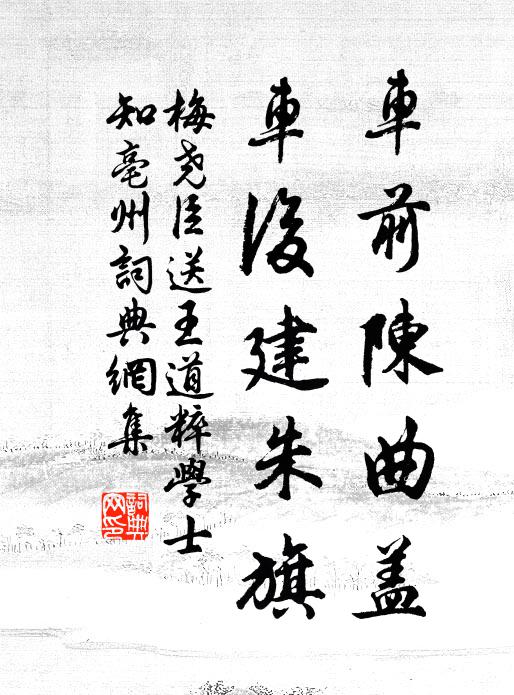 車前陳曲盖
車後建朱旗
梅尧臣送王道粹學士
知亳州詞典網集
詞典網印